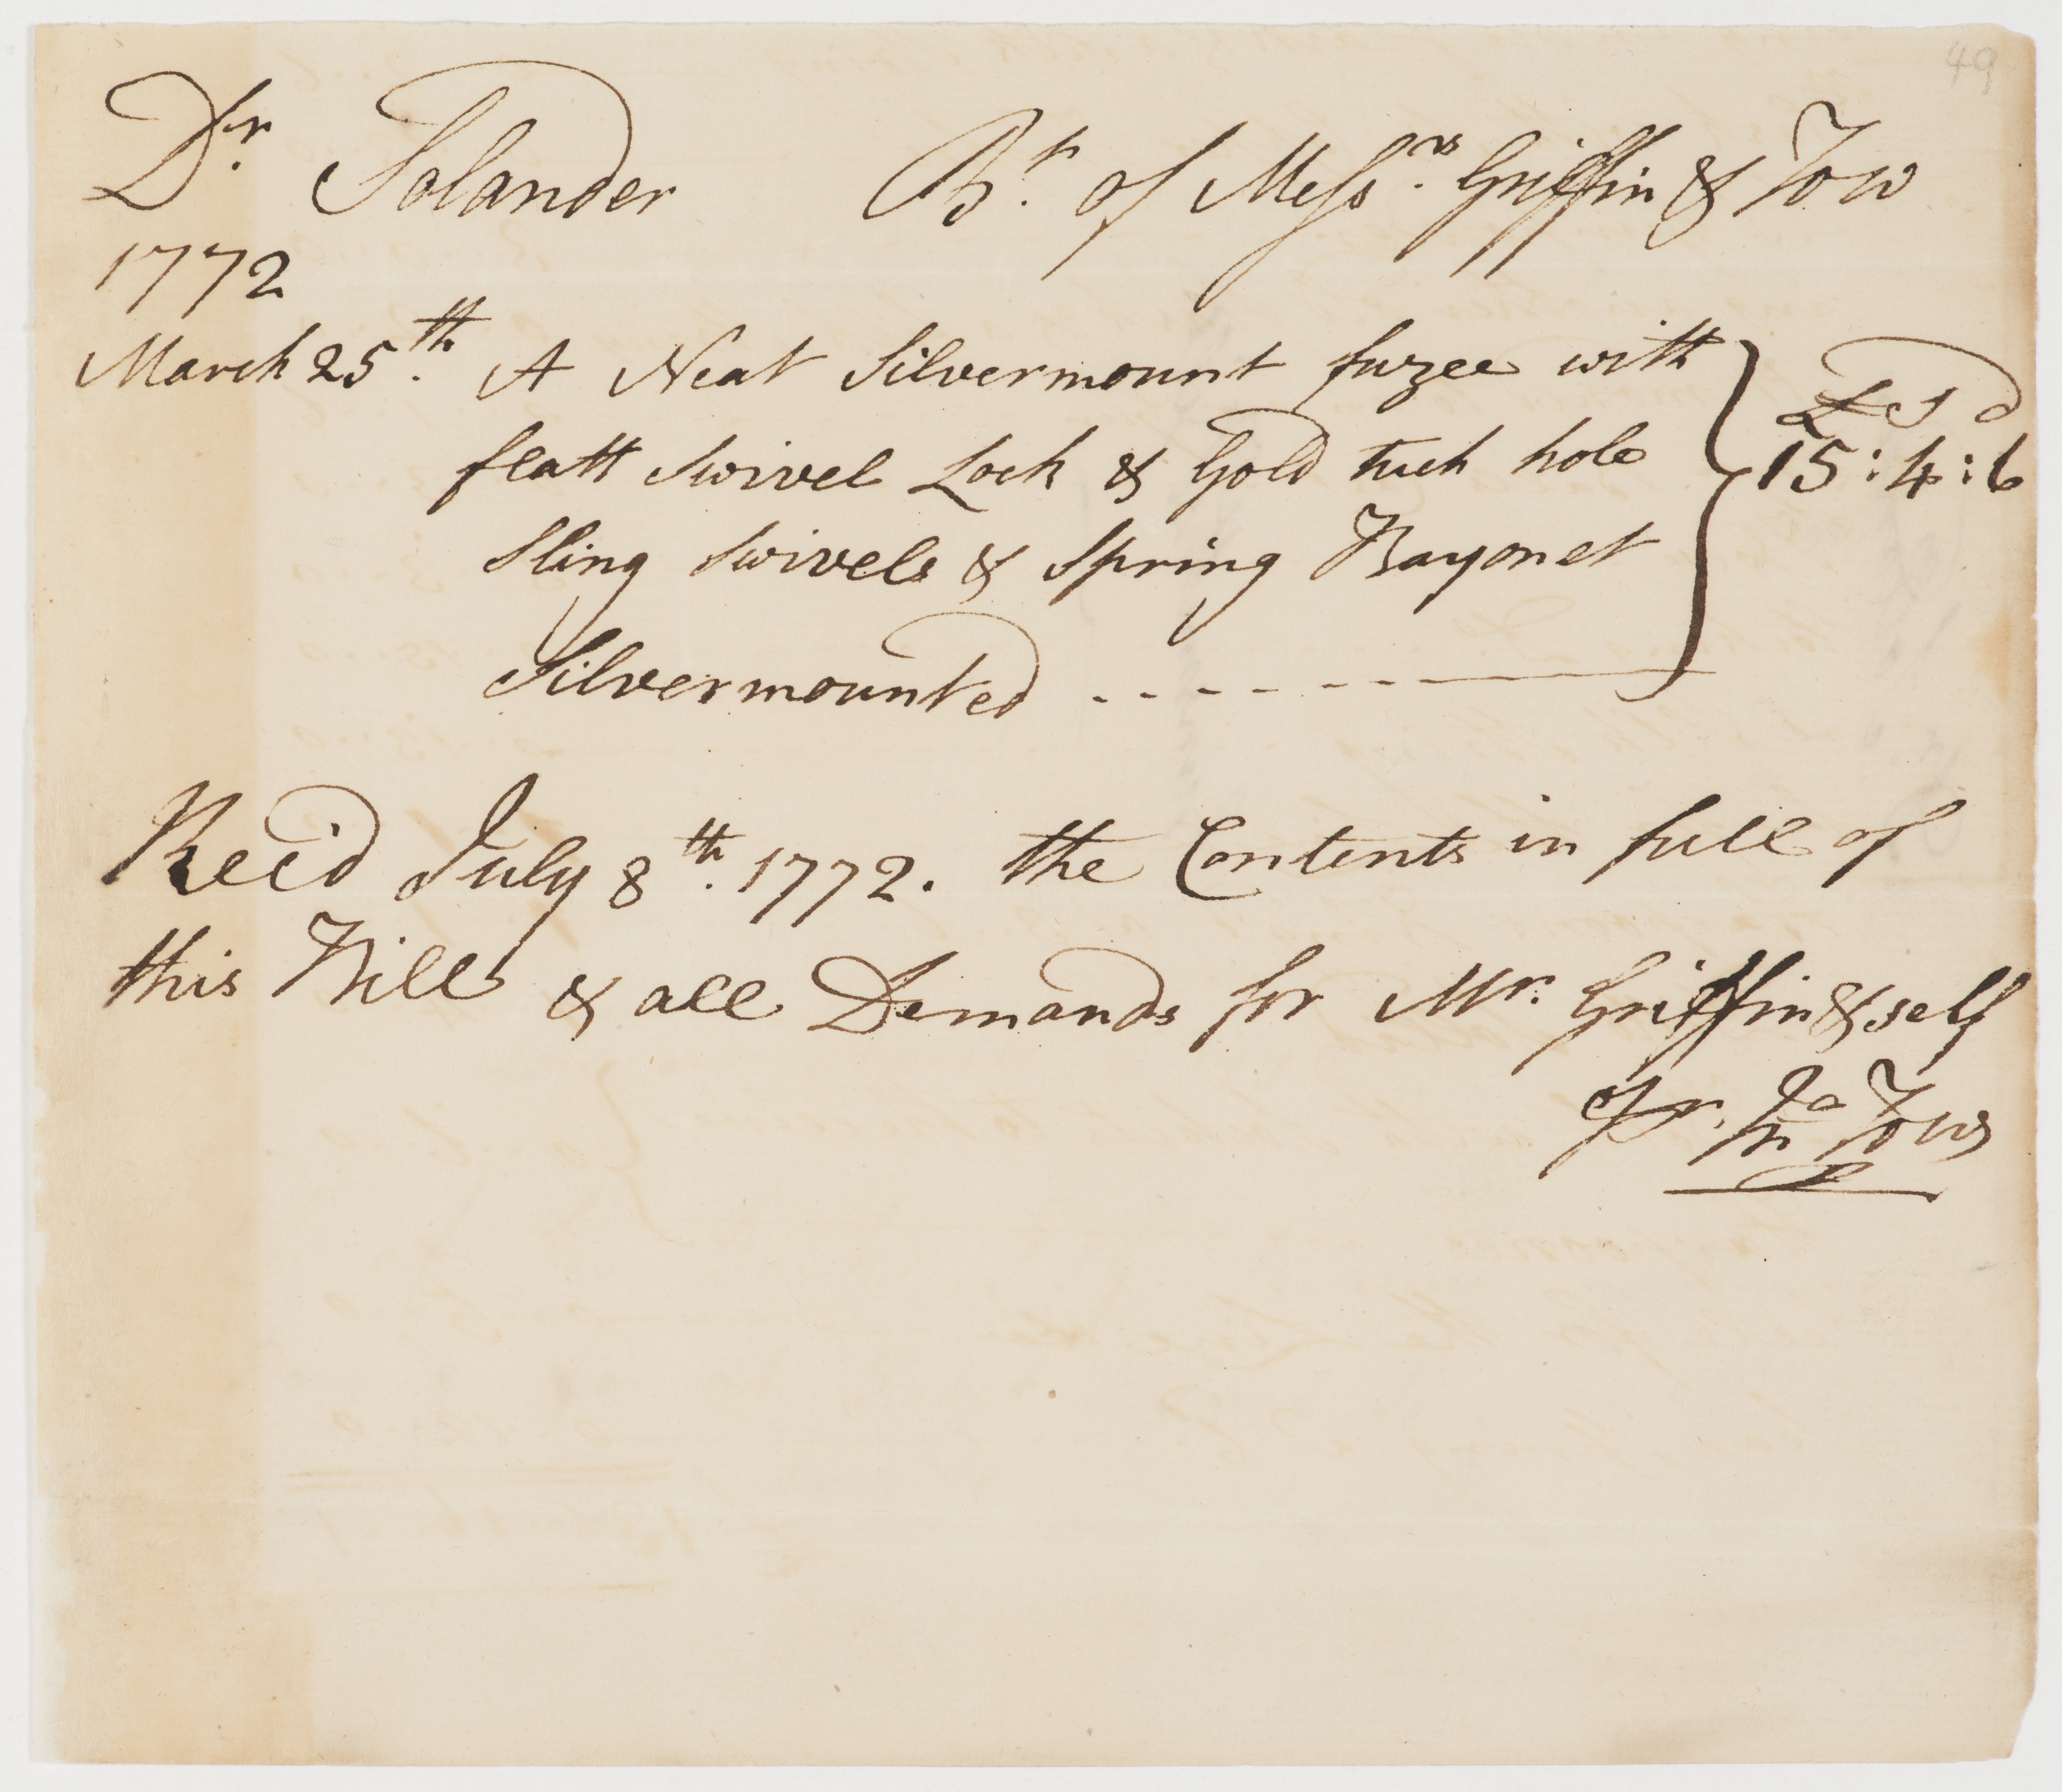 49
Dr. Solander Bt. of Messrs. Griffin & Tow
1772
March 25th. A Neat Silvermount fuzee with
£ s d
flatt Swivel Lock & Gold tuch hole
15 : 4 : 6
Sling Swivels & Spring Bayonet
Silvermounted
Rec'd July 8th. 1772. the Contents in full of
this Bill & all Demands for Mr. Griffin & self
pr. Jn Tow